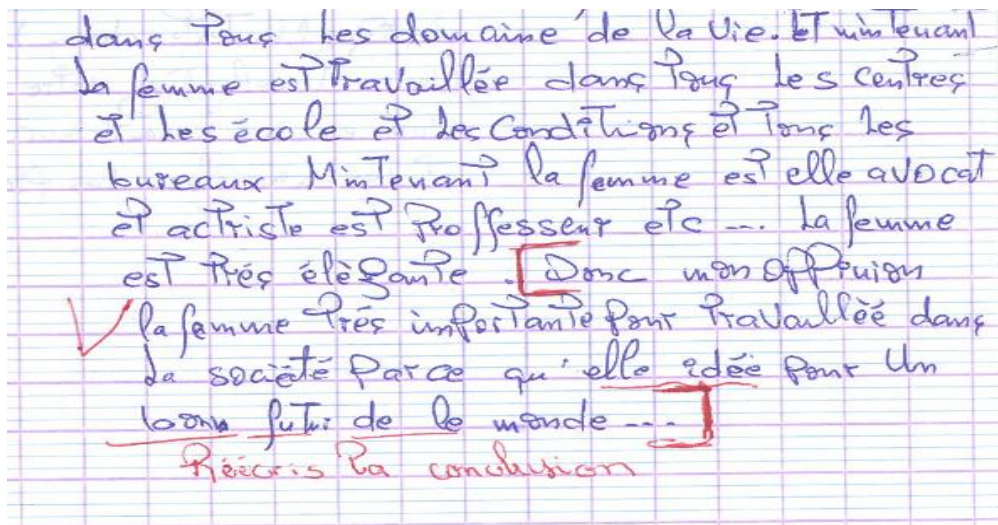 dans Tous Les domaine de la vie. Et mintenant
La femme est Travaillée dans Tous Les centres
et Les école et Les Conditions et Tous Les
bureaux Mintenant la femme est elle avocat
et actriste est Proffesseur etc ... La femme
est très élègante. [Donc mon oppinion
la femme très importante pour Travaillèé dans
La société Parce qu'elle idée pour Un
bonn futur de le monde ---]
Réécris la conclusion